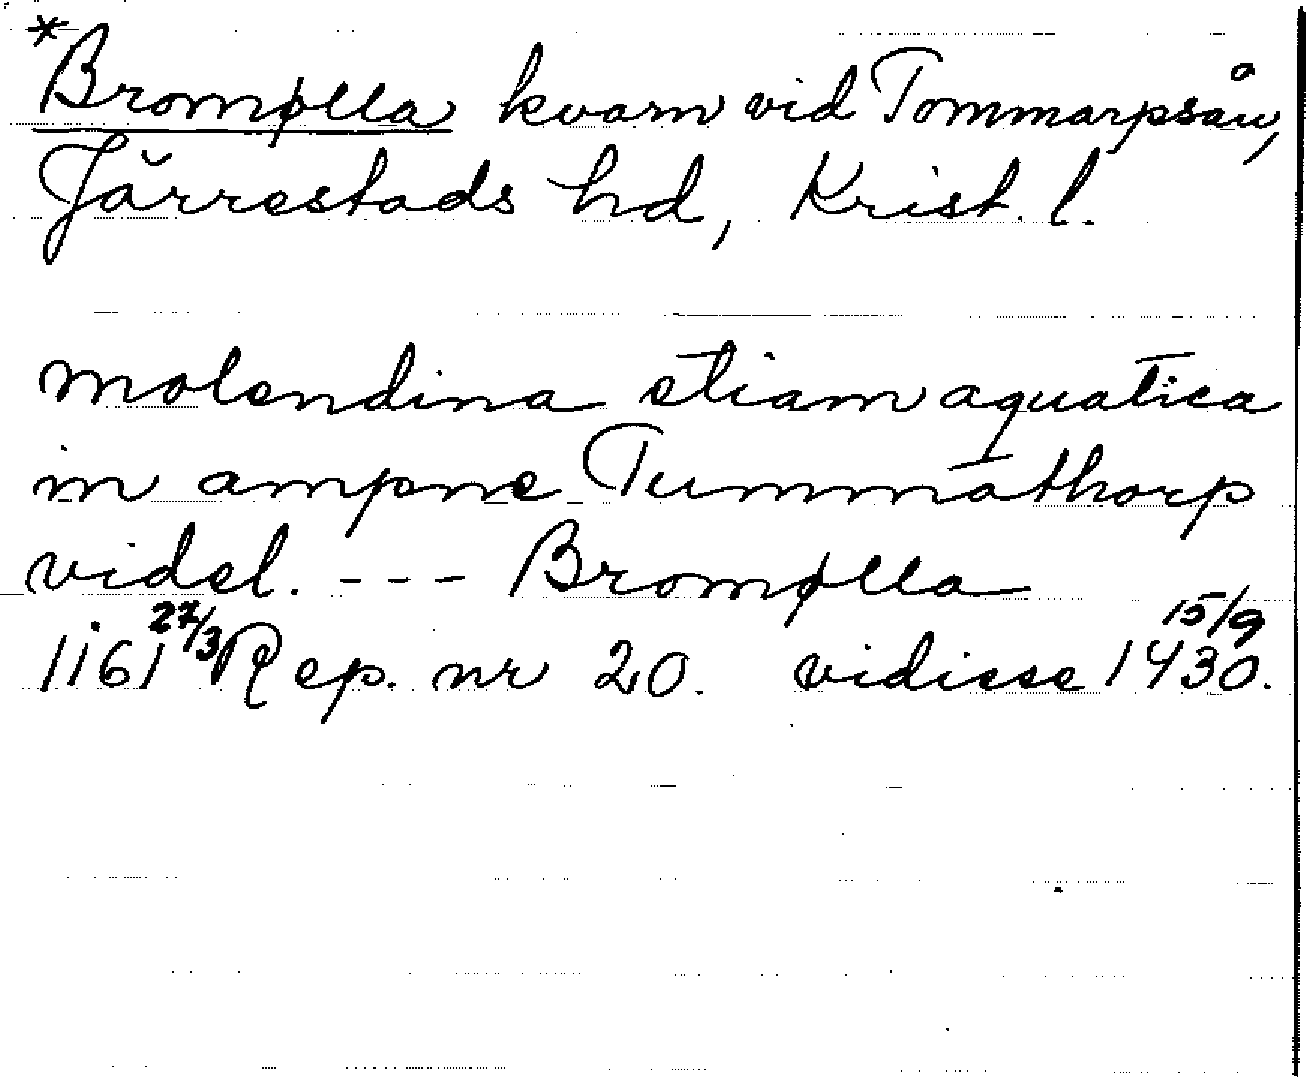 *Bromølla kvarn vid Tommarpsån,
Järrestads hd, Krist. l.
molendina etiam aquatica
in ampne Tummathorp
videl. - - - Bromølla
1161 27/3 Rep. nr 20. vidisse 15/9 1430.